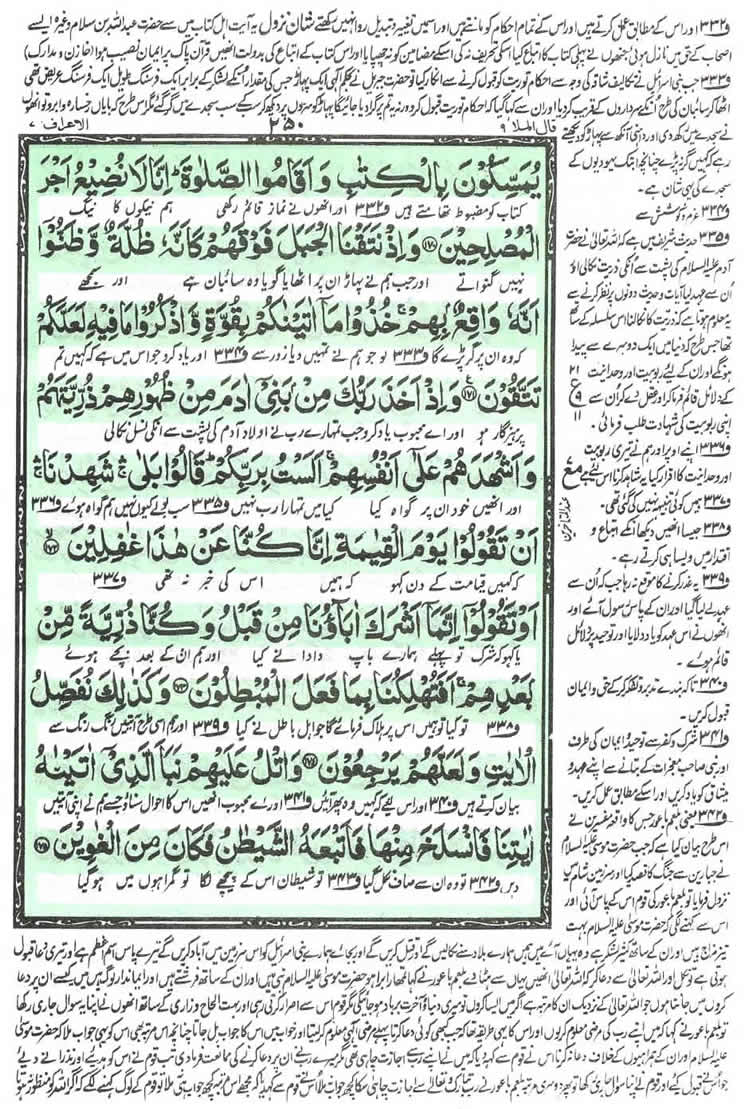 و۳۳۲ اور اس کے مطابق عمل کرتے ہیں اور اس کے تمام احکام کو مانتے ہیں اور اسمیں تغییر و تبدیل روا نہیں رکھتے شان نزول یہ آیت اہل کتاب میں سے حضرت عبداللہ بن سلام وغیرہ ایسے
اصحاب کے حق میں نازل ہوئی جنھوں نے پہلی کتاب کا اتباع کیا اسکی تحریف نہ کی اسکے مضامین کو نہ چھپایا اور اس کتاب کے اتباع کی بدولت انھیں قرآن پاک پر ایمان نصیب ہوا (خازن و مدارک)
و۳۳۳ جب بنی اسرائیل نے تکالیف شاقہ کی وجہ سے احکام توریت کو قبول کرنے سے انکار کیا تو حضرت جبریل نے بحکم الٰہی ایک پہاڑ جس کی مقدار انکے لشکر کے برابر ایک فرسنگ طویل ایک فرسنگ عریض تھی
اٹھا کر سائبان کی طرح انکے سرداروں کے قریب کر دیا اور ان سے کہا گیا کہ احکام توریت قبول کرو ورنہ یہ تم پر گرا دیا جائیگا پہاڑ کو سروں پر دیکھ کر سب کے سب سجدے میں گر گئے مگر اس طرح کہ بایاں رخسارہ و ابرو تو انھوں
قال الملا ۹
۲۵۰
الاعراف ۷
يُمَسِّكُوْنَ بِالْكِتٰبِ وَاَقَامُوا الصَّلٰوةَ ؕ اِنَّا لَا نُضِيْعُ اَجْرَ
کتاب کو مضبوط تھامتے ہیں و۳۳۲ اور انھوں نے نماز قائم رکھی ہم نیکوں کا نیگ
الْمُصْلِحِيْنَ ﴿۱۷۰﴾ وَاِذْ نَتَقْنَا الْجَبَلَ فَوْقَهُمْ كَاَنَّهٗ ظُلَّةٌ وَّظَنُّوْۤا
نہیں گنواتے اور جب ہم نے پہاڑ ان پر اٹھایا گویا وہ سائبان ہے اور سمجھے
اَنَّهٗ وَاقِعٌۢ بِهِمْ ۚ خُذُوْا مَاۤ اٰتَيْنٰكُمْ بِقُوَّةٍ وَّاذْكُرُوْا مَا فِيْهِ لَعَلَّكُمْ
کہ وہ ان پر گر پڑے گا و۳۳۳ لو جو ہم نے تمہیں دیا زور سے و۳۳۴ اور یاد کرو جو اس میں ہے کہ کہیں تم
تَتَّقُوْنَ ﴿۱۷۱﴾ وَاِذْ اَخَذَ رَبُّكَ مِنْۢ بَنِيْۤ اٰدَمَ مِنْ ظُهُوْرِهِمْ ذُرِّيَّتَهُمْ
پرہیزگار ہو اور اے محبوب یاد کرو جب تمہارے رب نے اولاد آدم کی پشت سے انکی نسل نکالی
وَاَشْهَدَهُمْ عَلٰۤى اَنْفُسِهِمْ ۚ اَلَسْتُ بِرَبِّكُمْ ؕ قَالُوْا بَلٰى ۛۚ شَهِدْنَا ۛۚ
اور انھیں خود ان پر گواہ کیا کیا میں تمہارا رب نہیں و۳۳۵ سب بولے کیوں نہیں ہم گواہ ہوئے و۳۳۶
اَنْ تَقُوْلُوْا يَوْمَ الْقِيٰمَةِ اِنَّا كُنَّا عَنْ هٰذَا غٰفِلِيْنَ ﴿۱۷۲﴾
کہ کہیں قیامت کے دن کہو کہ ہمیں اس کی خبر نہ تھی و۳۳۷
اَوْ تَقُوْلُوْۤا اِنَّمَاۤ اَشْرَكَ اٰبَآؤُنَا مِنْ قَبْلُ وَكُنَّا ذُرِّيَّةً مِّنْۢ
یا کہو کہ شرک تو پہلے ہمارے باپ دادا نے کیا اور ہم ان کے بعد بچے ہوئے
بَعْدِهِمْ ۚ اَفَتُهْلِكُنَا بِمَا فَعَلَ الْمُبْطِلُوْنَ ﴿۱۷۳﴾ وَكَذٰلِكَ نُفَصِّلُ
و۳۳۸ تو کیا تو ہمیں اس پر ہلاک فرمائے گا جو اہل باطل نے کیا و۳۳۹ اور ہم اسی طرح آیتیں رنگ رنگ سے
الْاٰيٰتِ وَلَعَلَّهُمْ يَرْجِعُوْنَ ﴿۱۷۴﴾ وَاتْلُ عَلَيْهِمْ نَبَاَ الَّذِيْۤ اٰتَيْنٰهُ
بیان کرتے ہیں و۳۴۰ اور اس لئے کہ کہیں وہ پھر آئیں و۳۴۱ اور اے محبوب انھیں اس کا احوال سناؤ جسے ہم نے اپنی آیتیں
اٰيٰتِنَا فَانْسَلَخَ مِنْهَا فَاَتْبَعَهُ الشَّيْطٰنُ فَكَانَ مِنَ الْغٰوِيْنَ ﴿۱۷۵﴾
دیں و۳۴۲ تو وہ ان سے صاف نکل گیا و۳۴۳ تو شیطان اس کے پیچھے لگا تو گمراہوں میں ہو گیا
نے سجدے میں رکھدی اور داہنی آنکھ سے پہاڑ کو دیکھتے
رہے کہ کہیں گر نہ پڑے چنانچہ ابتک یہودیوں کے
سجدے کی یہی شان ہے۔
و۳۳۴ عزم و کوشش سے
و۳۳۵ حدیث شریف میں ہے کہ اللہ تعالیٰ نے حضرت
آدم علیہ السلام کی پشت سے انکی ذریت نکالی اور
ان سے عہد لیا آیات و حدیث دونوں پر نظر کرنے سے
یہ معلوم ہوتا ہے کہ ذریت کا نکالنا اس سلسلہ کے ساتھ
تھا جس طرح کہ دنیا میں ایک دوسرے سے پیدا
ہونگے اور ان کے لئے ربوبیت اور وحدانیت
کے دلائل قائم فرما کر اور عقل دے کر ان سے
اپنی ربوبیت کی شہادت طلب فرمائی۔
و۳۳۶ اپنے اوپر اور ہم نے تیری ربوبیت
اور وحدانیت کا اقرار کیا یہ شاہد کرنا اس لئے ہے
و۳۳۷ ہمیں کوئی تنبیہ نہیں کی گئی تھی۔
و۳۳۸ جیسا انھیں دیکھا انکے اتباع و
اقتدا میں ویسا ہی کرتے رہے۔
و۳۳۹ یہ عذر کرنے کا موقع نہ رہا جب کہ ان سے
عہد لے لیا گیا اور ان کے پاس رسول آئے اور
انھوں نے اس عہد کو یاد دلایا اور توحید پر دلائل
قائم ہوئے۔
و۳۴۰ تاکہ بندے تدبر و تفکر کر کے حق و ایمان
قبول کریں۔
و۳۴۱ شرک و کفر سے توحید و ایمان کی طرف
اور نبی صاحب معجزات کے بتانے سے اپنے عہد و
میثاق کو یاد کریں اور اسکے مطابق عمل کریں۔
و۳۴۲ یعنی بلعم باعور جس کا واقعہ مفسرین نے
اس طرح بیان کیا ہے کہ جب حضرت موسیٰ علیہ السلام
نے جبارین سے جنگ کا قصد کیا اور سرزمین شام میں
نزول فرمایا تو بلعم باعور کی قوم اس کے پاس آئی اور
اس سے کہنے لگی کہ حضرت موسیٰ علیہ السلام بہت
تیز مزاج ہیں اور ان کے ساتھ کثیر لشکر ہے وہ یہاں آئے ہیں ہمیں ہمارے بلاد سے نکالیں گے اور قتل کریں گے اور بجائے ہمارے بنی اسرائیل کو اس سرزمین میں آباد کریں گے تیرے پاس اسم اعظم ہے اور تیری دعا قبول